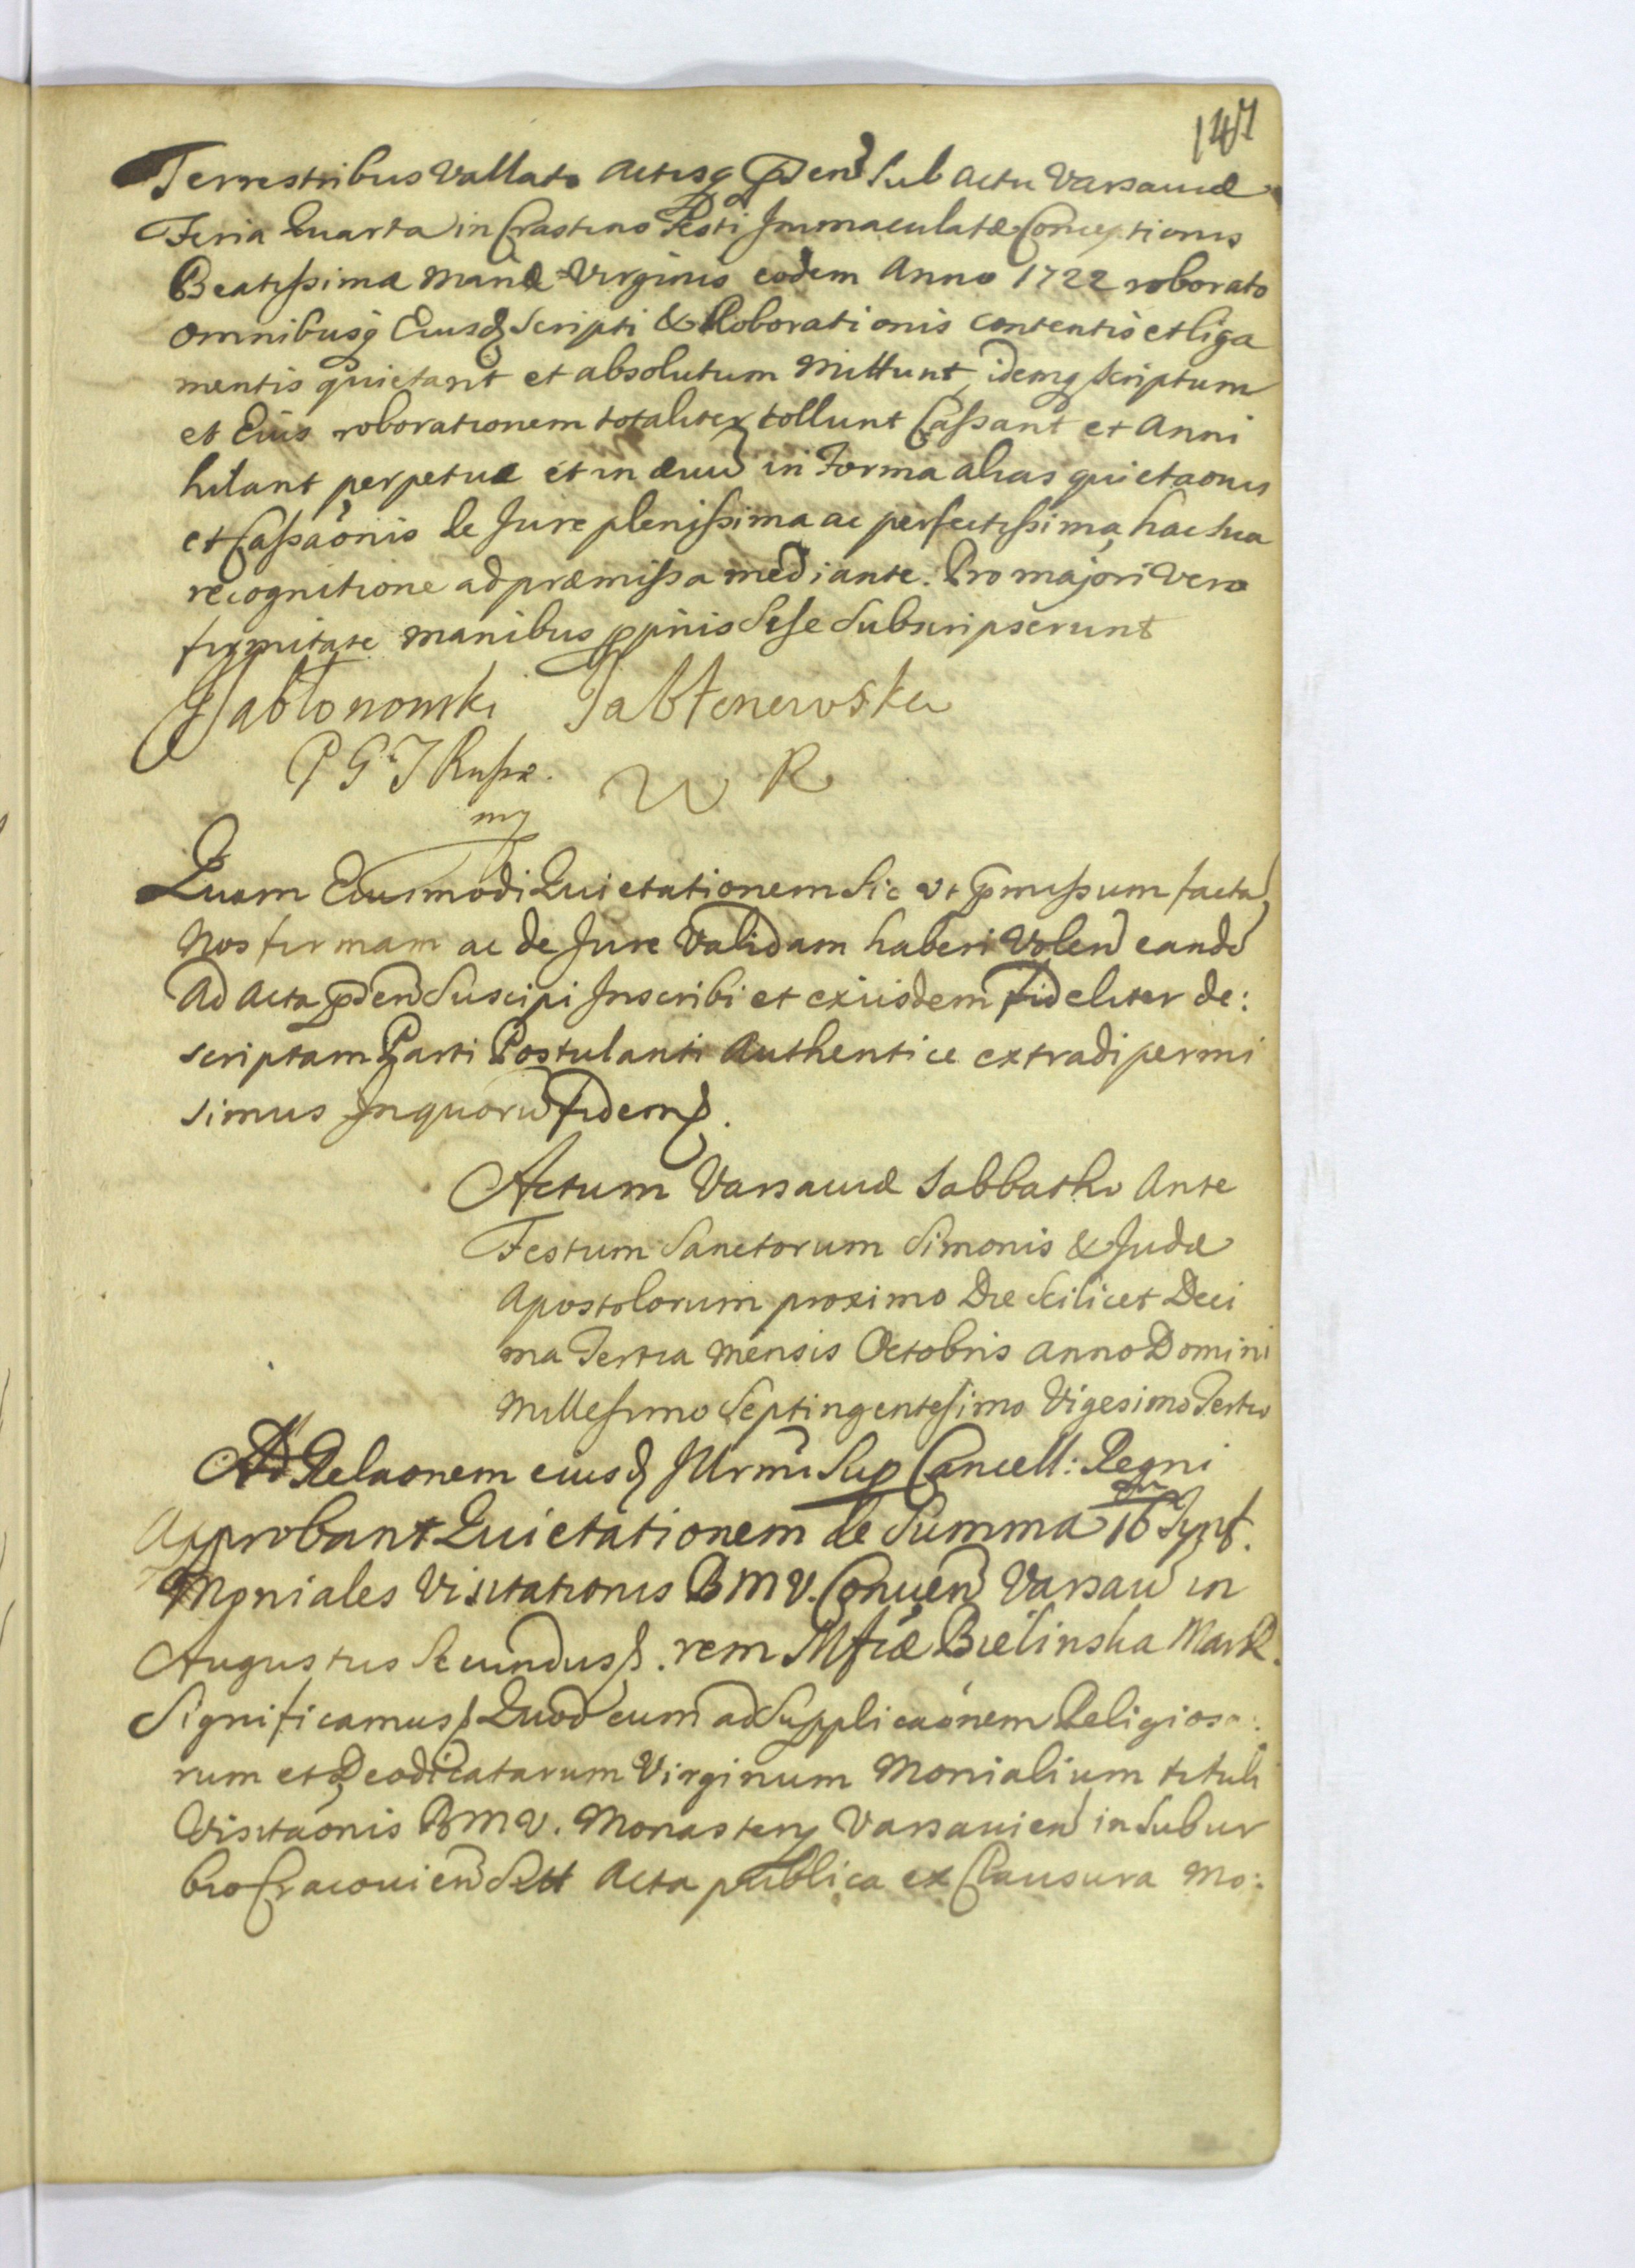 147
Terrestribus Vallato Actisq pden Sub Actu Varsaviæ
Feria Quarta in Crastino Festi Immaculatæ Conceptionis
Beatissimæ Mariæ Virginis eodem Anno 1722 roborato
omnibusq Eiusd Scripti & Roborationis contentis et liga
mentis quietant et absolutum Mittunt, idemq scriptum
et Eius roborationem totaliter tollunt Cassant et Anni
hilant perpetuæ et in ævu in Forma alias quietaonis
et Cassaonis de Jure plenissima ac perfectissima, hac sua
recognitione ad præmissa mediante. Pro majori Vero
firmitate manibus ppriis Sese Subscripserunt
Jabłonowski Jabłonowska
P G J Russiæ. W R
mp
Quam Eiusmodi Quietationem Sic ut pmissum facta
Nos firmam ac de Jure Validam haberi Volen eande
Ad Acta pden Suscipi Inscribi et exiisdem Fideliter de:
scriptam Parti Postulanti Authentice extradi permi
simus In quoru Fidem.
Actum Varsaviæ Sabbatho Ante
Festum Sanctorum Simonis & Judæ
Apostolorum proximo Die Scilicet Deci
ma Tertia Mensis Octobris Anno Domini
Millesimo Septingentesimo Vigesimo Tertio
Ad Relaonem eiusd Illrmi Sup Cancell: Regni
Approbant Quietationem de Summa 16
Moniales Visitationis B M V. Conven Varsav in
Augustus Secundus. rem Mficæ Bielinska Mar R.
Significamus Quod cum ad Supplicaonem Religiosa:
rum et Deodicatarum Virginum Monialium tituli
Visitaonis B M V. Monastery Varsavien in Subur
bio Cracovien Acta publica ex Clausura Mo: